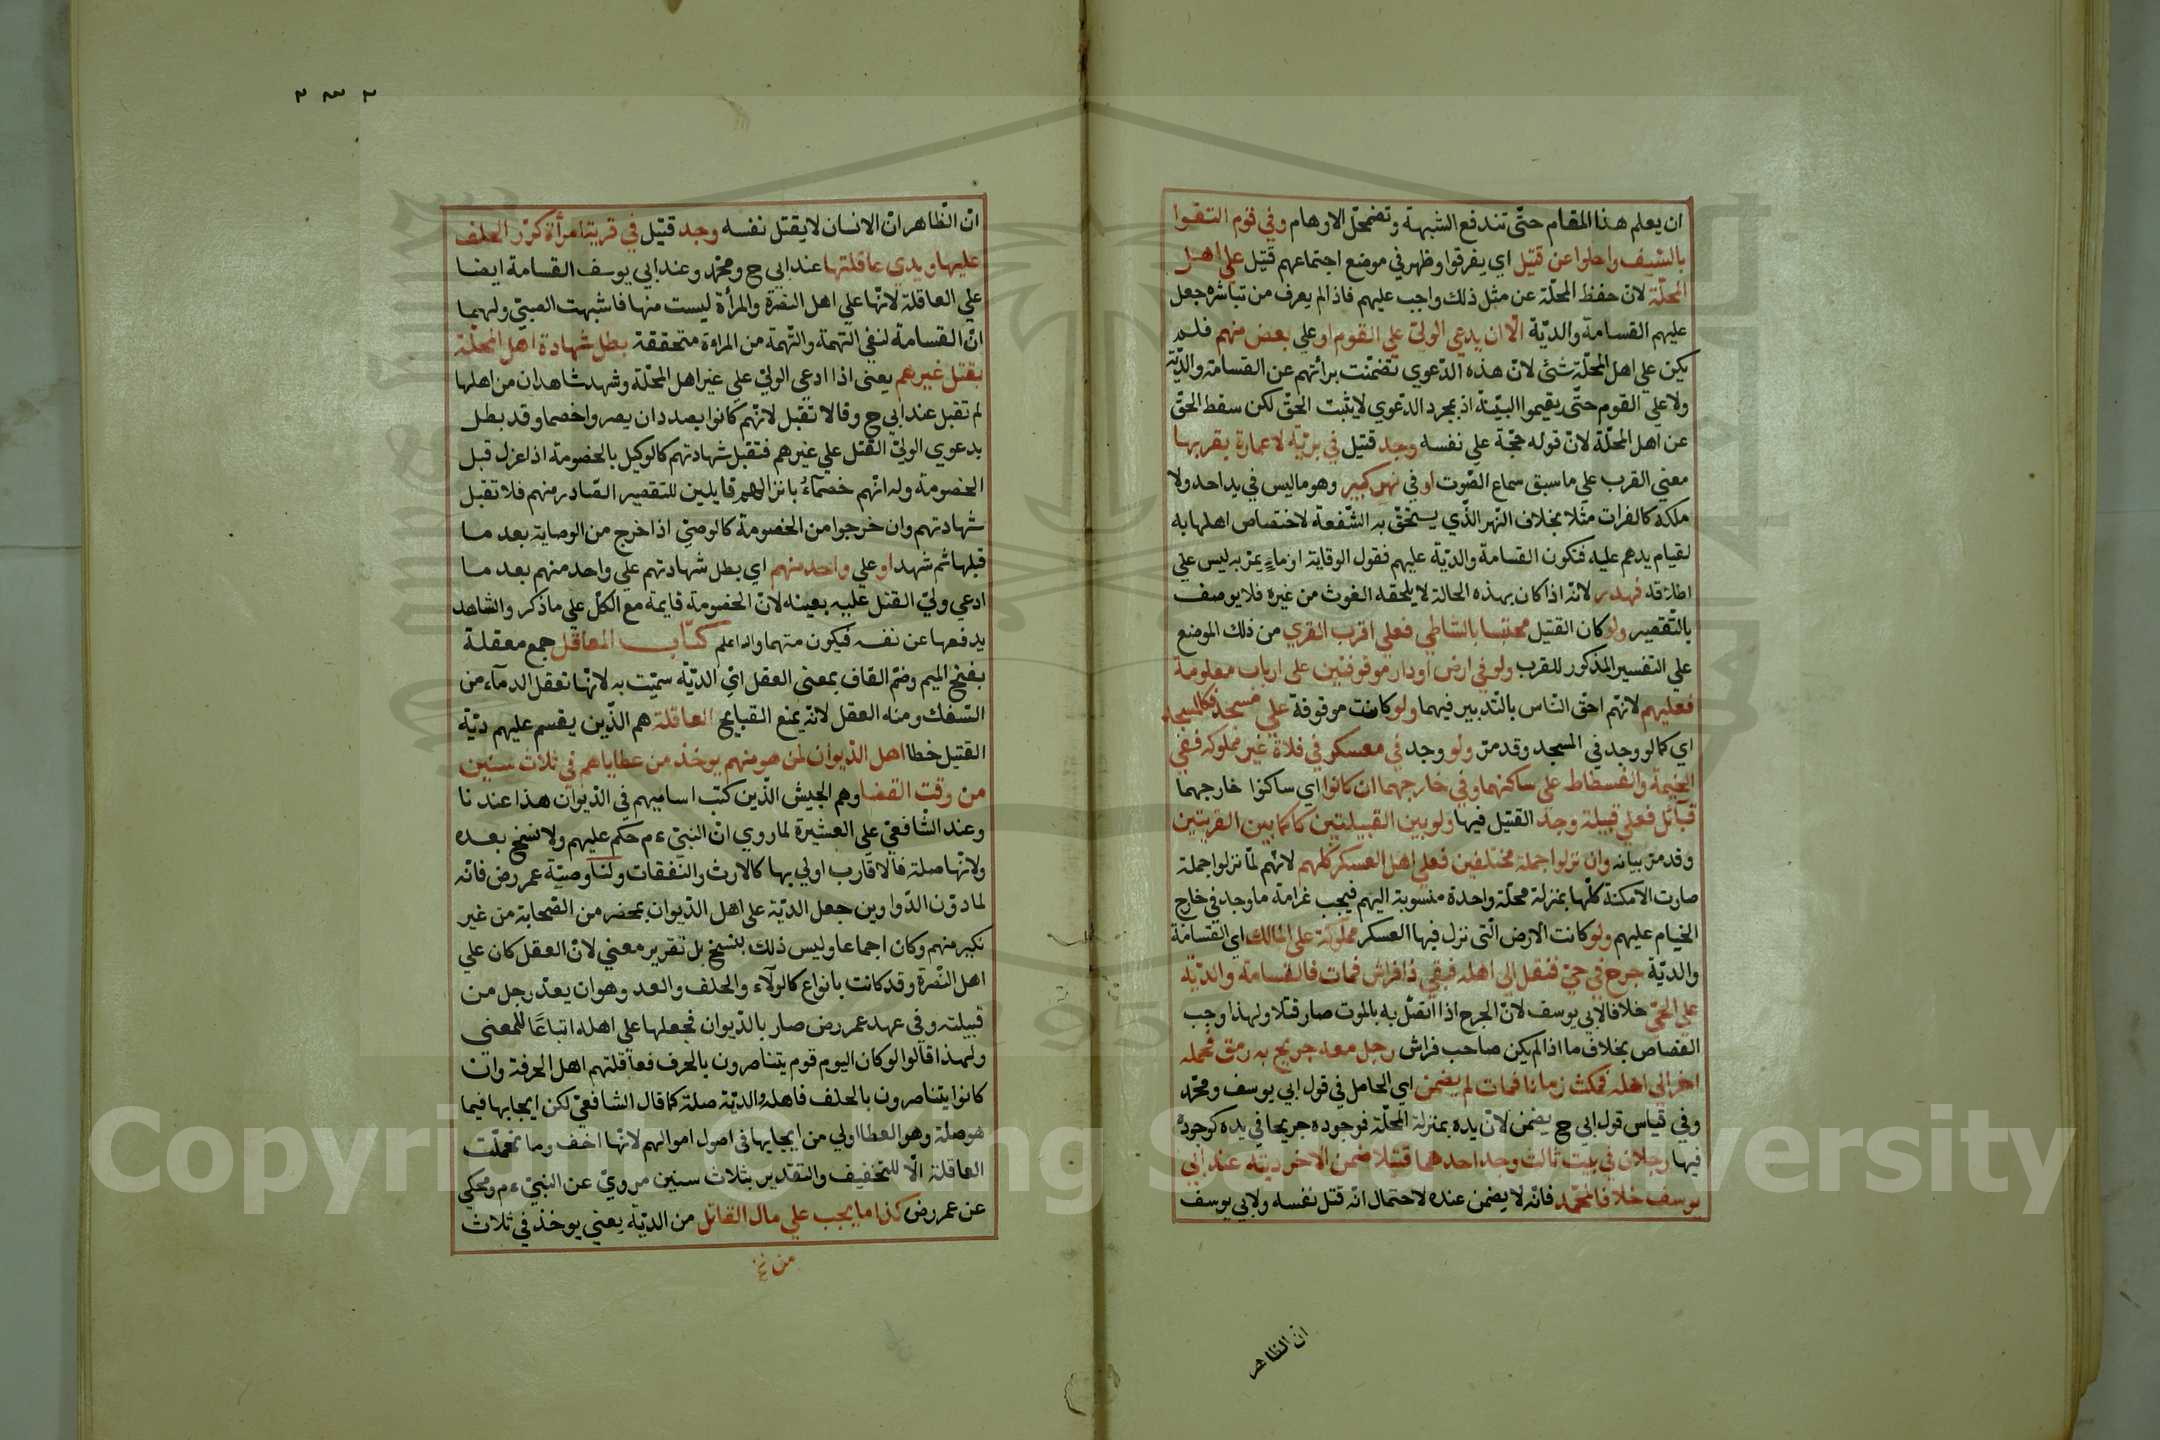 ان يعلم هذا المقام حتّى تندفع الشبهة وتضمحلّ الاوهام وفي قوم التقوا
بالسّيف واجلوا عن قتيل اي يفرقوا وظهر في موضع اجتماعهم قتيل علي اهل
المحلّة لانّ حفظ المحلّة عن مثل ذلك واجب عليهم فاذا لم يعرف من تباشره جعل
عليهم القسامة والديّة الّا ان يدعي الوليّ علي القوم او علي بعض منهم فلم
يكن علي اهل المحلّة شئ لانّ هذه الدّعوي تضمّنت برأتهم عن القسامة والديّة
ولا علي القوم حتّى يقيموا البيّنة اذ بمجرد الدّعوي لا يثبت الحقّ لكن سقط الحقّ
عن اهل المحلّة لانّ قوله حجّة علي نفسه وجد قتيل في بريّه لا عمارة بقربها
معني القرب علي ما سبق سماع الصّوت او في نهر كبير وهو ما ليس في يد احد ولا
ملكه كالفرات مثلا بخلاف النّهر الّذي يستحقّ به الشّفعة لاختصاص اهلها به
لقيام يدهم عليه فتكون القسامة والديّة عليهم فقول الوقاية او ماءٍ يمرّ به ليس علي
اطلاقه فهدر لانّه اذا كان بهذه الحالة لا يلحقه الغوث من غيره فلا يوصف
بالتّقصير ولو كان القتيل محتبسا بالشّاطي فعلي اقرب القري من ذلك الموضع
علي التفسير المذكور للقرب ولو في ارض او دار موقوفتين على ارباب معلومة
فعليهم لانّهم احقّ النّاس بالتّدبير فيهما ولو كانت موقوفة علي مسجد فكالمسجد
اي كما لو وجد في المسجد وقد مرّ ولو وجد في معسكر في فلاة غير مملوكه ففي
الخيمة والفسطاط علي ساكنهما وفي خارجهما ان كانوا اي ساكنوا خارجهما
قبائل فعلي قبيلة وجد القتيل فيها ولو بين القبيلتين كان كما بين القريتين
وقد مرّ بيانه وان نزلوا جملة مختلفين فعلي اهل العسكر كلهم لانّهم لمّا نزلوا جملة
صارت الامكنة كلّها بمنزلة محلّة واحدة منسوبة اليهم فيجب غرامة ما وجد في خارج
الخيام عليهم ولو كانت الارض الّتي نزل فيها العسكر مملوكة علي المالك اي القسامة
والديّة جرح في حيّ فنقل الي اهله فبقي ذا فراش فمات فالقسامة والديّة
علي الحيّ خلافا لابي يوسف لانّ الجرح اذا اتّصل به بالموت صار قتلا ولهذا وجب
القصاص بخلاف ما اذا لم يكن صاحب فراش رجل معه جريح به رمق فحمله
اخر الي اهله فمكث زمانا فمات لم يضمن اي الحامل في قول ابي يوسف ومحمّد
وفي قياس قول ابي ح يضمن لانّ يده بمنزلة المحلّة فوجوده جريحا في يده كوجوده
فيها رجلان في بيت ثالث وجد احدهما قتيلا ضمن الاخر ديته عند ابي
يوسف خلافا لمحمّد فانّه لا يضمن عنده لاحتمال انّه قتل نفسه ولابي يوسف
ان الظاهر
٢٣٢
انّ الظّاهر انّ الانسان لا يقتل نفسه وجد قتيل في قرية امرأة كرّر الحلف
عليها ويدي عاقلتها عند ابي ح ومحمّد وعند ابي يوسف القسامة ايضا
علي العاقلة لانّها علي اهل النصرة والمرأة ليست منها فاشبهت الصبيّ ولهما
انّ القسامة لنفي التهمة والتّهمة من المراة متحققة بطل شهادة اهل المحلّة
بقتل غيرهم يعنى اذا ادعي الوليّ علي غير اهل المحلّة وشهد شاهدان من اهلها
لم تقبل عند ابي ح وقالا تقبل لانّهم كانوا بصدد ان يصيروا خصما وقد بطل
بدعوي الوليّ القتل علي غيرهم فتقبل شهادتهم كالوكيل بالخصومة اذا عزل قبل
الخصومة وله انّهم خصمآء بانزالهم قايلين للتقصير الصّادر منهم فلا تقبل
شهادتهم وان خرجوا من الخصومة كالوصيّ اذا خرج من الوصاية بعد ما
قبلها ثم شهد او علي واحد منهم اي بطل شهادتهم علي واحد منهم بعد ما
ادعي وليّ القتل عليه بعينه لانّ الخصومة قايمة مع الكلّ علي ما ذكر والشاهد
يدفعها عن نفسه فيكون متهما والله اعلم كتاب المعاقل جمع معقلة
بفتح الميم وضمّ القاف بمعنى العقل اي الديّة سمّيت به لانّها تعقل الدمآء من
السّفك ومنه العقل لانّه يمنع القبايح العاقلة هم الذّين يقسم عليهم ديّة
القتيل خطا اهل الدّيوان لمن هو منهم يوخذ من عطاياهم في ثلاث سنين
من وقت القضا وهم الجيش الّذين كتب اساميهم في الدّيوان هذا عندنا
وعند الشّافعيّ علي العشيرة لما روي انّ النبيّ ءم حكم عليهم ولا نسخ بعده
ولانّها صلة فالاقارب اولي بها كالارث والنّفقات ولنا وصيّة عمر رض فانّه
لما دوّن الدّواوين جعل الديّة على اهل الدّيوان بمحضر من الصّحابة من غير
نكير منهم وكان اجماعا وليس ذلك بنسخ بل تقرير معني لانّ العقل كان علي
اهل النّصرة وقد كانت بانواع كالولآء والحلف والعد وهو ان يعدّ رجل من
قبيلته وفي عهد عمر رض صار بالدّيوان فجعلها علي اهله اتباعًا للمعنى
ولهذا قالوا لو كان اليوم قوم يتناصرون بالحرف فعاقلتهم اهل الحرفة وان
كانوا يتناصرون بالحلف فاهله والديّة صلة كما قال الشافعيّ لكن ايجابها فيما
هو صلة وهو العطا اولي من ايجابها في اصول اموالهم لانّها اخف وما تحملت
العاقلة الّا للتخفيف والتقدير بثلاث سنين مرويّ عن النبيّ ءم ومحكي
عن عمر رض كذا ما يجب علي مال القاتل من الديّة يعني يوخذ في ثلاث
Copyright © King Saud University